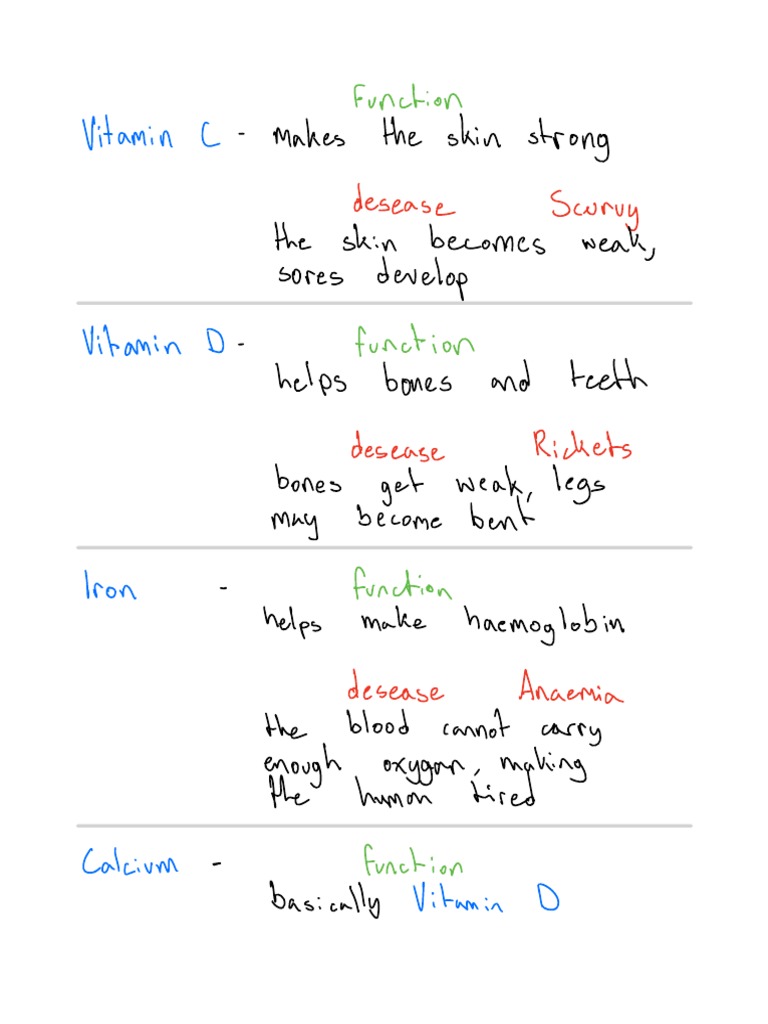 Function
Vitamin C - makes the skin strong
desease Scurvy
the skin becomes weak,
sores develop
Vitamin D - function
helps bones and teeth
desease Rickets
bones get weak, legs
may become bent
Iron - function
helps make haemoglobin
desease Anaemia
the blood cannot carry
enough oxygan, making
the human tired
Calcium - function
basically Vitamin D